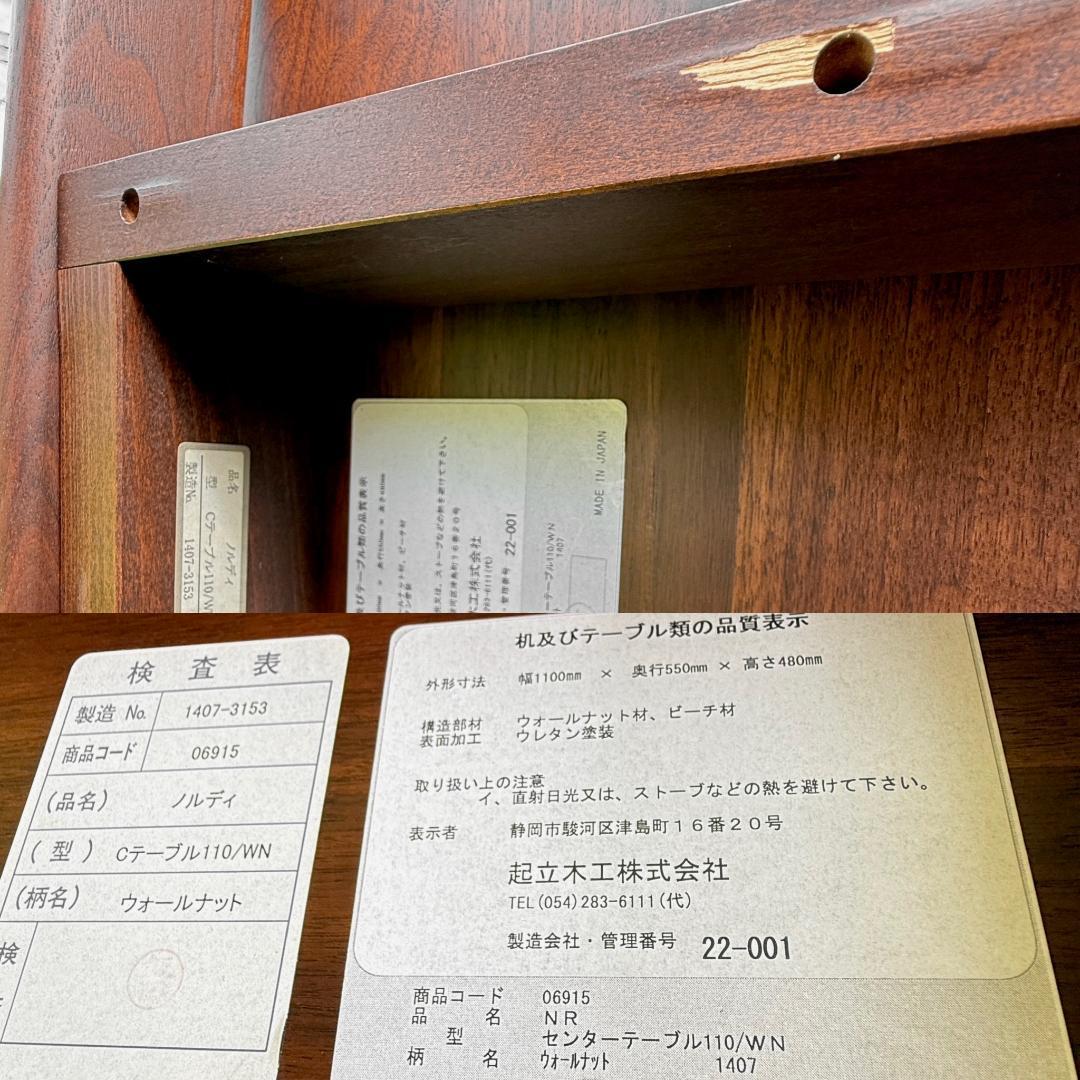 品名 ノルディ
型 Cテーブル110/W
製造No. 1407-3153
MADE IN JAPAN
22-001
1407
検査表
製造 No. 1407-3153
商品コード 06915
(品名) ノルディ
(型) Cテーブル110/WN
(柄名) ウォールナット
検
机及びテーブル類の品質表示
外形寸法 幅1100mm × 奥行550mm × 高さ480mm
構造部材 ウォールナット材、ビーチ材
表面加工 ウレタン塗装
取り扱い上の注意
イ、直射日光又は、ストーブなどの熱を避けて下さい。
表示者 静岡市駿河区津島町16番20号
起立木工株式会社
TEL(054)283-6111(代)
製造会社・管理番号 22-001
商品コード 06915
品名 NR
型 センターテーブル110/WN
柄名 ウォールナット 1407